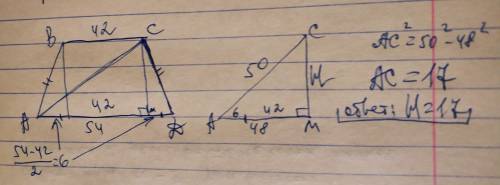 B 42 C
A 42 D
54
54-42
2 =6
C
50 H
A 6 42 M
48
AC²=50²-48²
AC=17
ответ: H=17